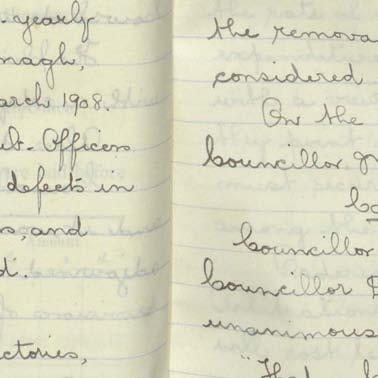 yearly
magh,
arch 1908.
ub. Officers
defects in
s, and
d.
ctories,
the remova
considered
On the
Councillor
Councillor
Councillor
unanimous
"That